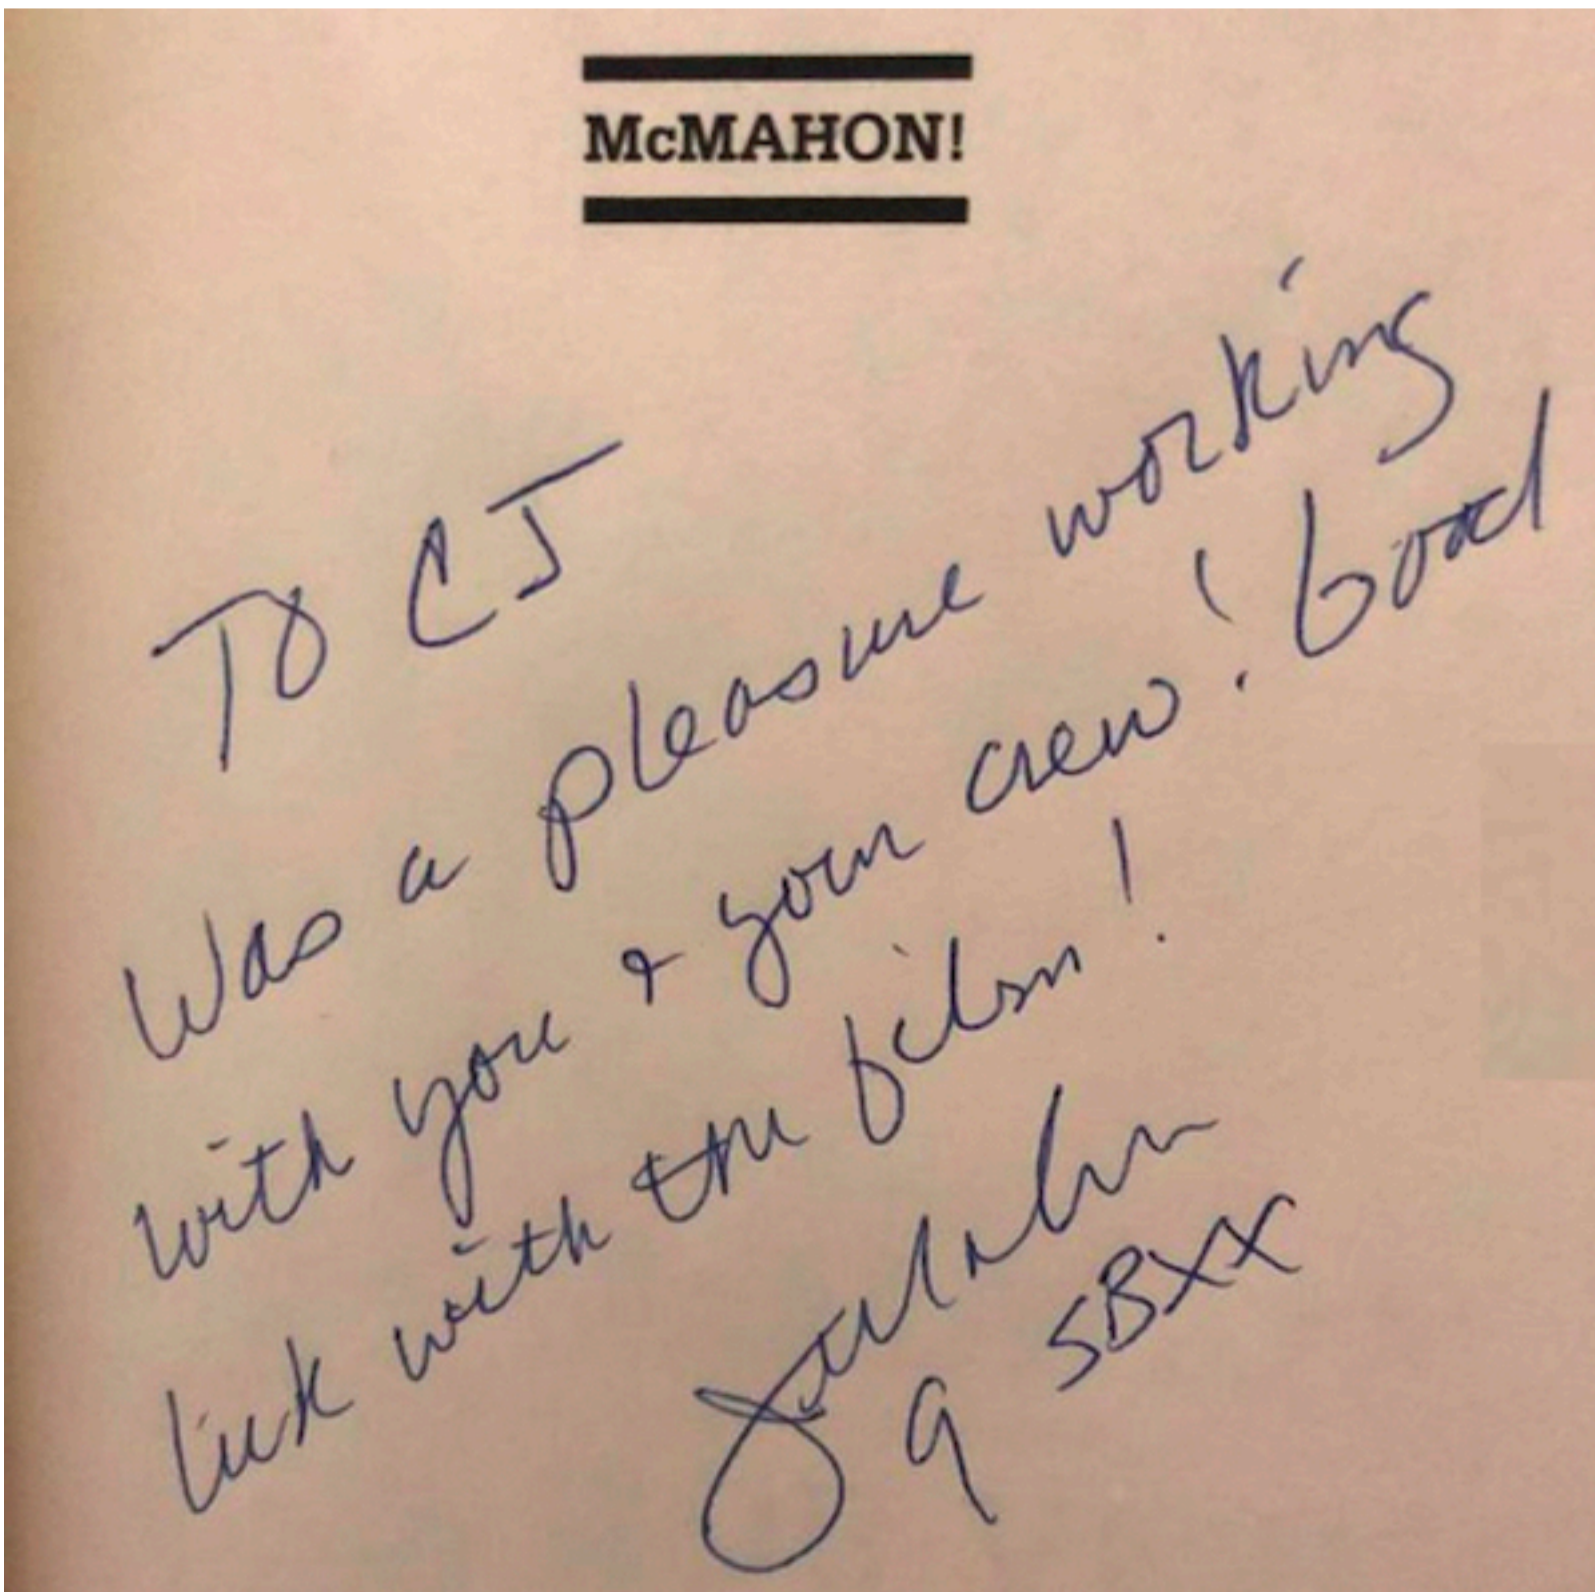 McMAHON!
To CJ
Was a pleasure working
with you & your crew! Good
luck with the film!
9 SBXX